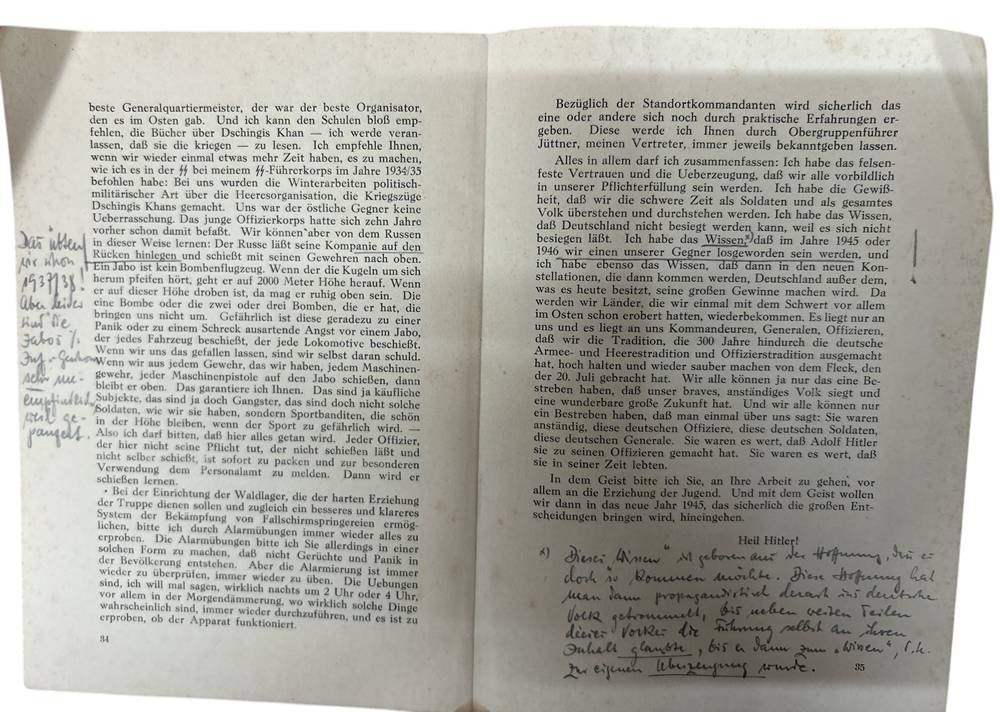 beste Generalquartiermeister, der war der beste Organisator,
den es im Osten gab. Und ich kann den Schulen bloß emp-
fehlen, die Bücher über Dschingis Khan — ich werde veran-
lassen, daß sie die kriegen — zu lesen. Ich empfehle Ihnen,
wenn wir wieder einmal etwas mehr Zeit haben, es zu machen,
wie ich es in der ᛋᛋ bei meinem ᛋᛋ-Führerkorps im Jahre 1934/35
befohlen habe: Bei uns wurden die Winterarbeiten politisch-
militärischer Art über die Heeresorganisation, die Kriegszüge
Dschingis Khans gemacht. Uns war der östliche Gegner keine
Ueberraschung. Das junge Offizierkorps hatte sich zehn Jahre
vorher schon damit befaßt. Wir können aber von dem Russen
in dieser Weise lernen: Der Russe läßt seine Kompanie auf den
Rücken hinlegen und schießt mit seinen Gewehren nach oben.
Ein Jabo ist kein Bombenflugzeug. Wenn der die Kugeln um sich
herum pfeifen hört, geht er auf 2000 Meter Höhe herauf. Wenn
er auf dieser Höhe droben ist, da mag er ruhig oben sein. Die
eine Bombe oder die zwei oder drei Bomben, die er hat, die
bringen uns nicht um. Gefährlich ist diese geradezu zu einer
Panik oder zu einem Schreck ausartende Angst vor einem Jabo,
der jedes Fahrzeug beschießt, der jede Lokomotive beschießt.
Wenn wir uns das gefallen lassen, sind wir selbst daran schuld.
Wenn wir aus jedem Gewehr, das wir haben, jedem Maschinen-
gewehr, jeder Maschinenpistole auf den Jabo schießen, dann
bleibt er oben. Das garantiere ich Ihnen. Das sind ja käufliche
Subjekte, das sind ja doch Gangster, das sind doch nicht solche
Soldaten, wie wir sie haben, sondern Sportbanditen, die schön
in der Höhe bleiben, wenn der Sport zu gefährlich wird. —
Also ich darf bitten, daß hier alles getan wird. Jeder Offizier,
der hier nicht seine Pflicht tut, der nicht schießen läßt und
nicht selber schießt, ist sofort zu packen und zur besonderen
Verwendung dem Personalamt zu melden. Dann wird er
schießen lernen.
• Bei der Einrichtung der Waldlager, die der harten Erziehung
der Truppe dienen sollen und zugleich ein besseres und klareres
System der Bekämpfung von Fallschirmspringereien ermög-
lichen, bitte ich durch Alarmübungen immer wieder alles zu
erproben. Die Alarmübungen bitte ich Sie allerdings in einer
solchen Form zu machen, daß nicht Gerüchte und Panik in
der Bevölkerung entstehen. Aber die Alarmierung ist immer
wieder zu überprüfen, immer wieder zu üben. Die Uebungen
sind, ich will mal sagen, wirklich nachts um 2 Uhr oder 4 Uhr,
vor allem in der Morgendämmerung, wo wirklich solche Dinge
wahrscheinlich sind, immer wieder durchzuführen, und es ist zu
erproben, ob der Apparat funktioniert.
34
Das übten
wir schon
1937/38!
Aber leider
sind die
Jabos
sehr un-
empfindlich
weil ge-
panzert.
Bezüglich der Standortkommandanten wird sicherlich das
eine oder andere sich noch durch praktische Erfahrungen er-
geben. Diese werde ich Ihnen durch Obergruppenführer
Jüttner, meinen Vertreter, immer jeweils bekanntgeben lassen.
Alles in allem darf ich zusammenfassen: Ich habe das felsen-
feste Vertrauen und die Ueberzeugung, daß wir alle vorbildlich
in unserer Pflichterfüllung sein werden. Ich habe die Gewiß-
heit, daß wir die schwere Zeit als Soldaten und als gesamtes
Volk überstehen und durchstehen werden. Ich habe das Wissen,
daß Deutschland nicht besiegt werden kann, weil es sich nicht
besiegen läßt. Ich habe das Wissen, daß im Jahre 1945 oder
1946 wir einen unserer Gegner losgeworden sein werden, und
ich habe ebenso das Wissen, daß dann in den neuen Kon-
stellationen, die dann kommen werden, Deutschland außer dem,
was es heute besitzt, seine großen Gewinne machen wird. Da
werden wir Länder, die wir einmal mit dem Schwert vor allem
im Osten schon erobert hatten, wiederbekommen. Es liegt nur an
uns und es liegt an uns Kommandeuren, Generalen, Offizieren,
daß wir die Tradition, die 300 Jahre hindurch die deutsche
Armee- und Heerestradition und Offizierstradition ausgemacht
hat, hoch halten und wieder sauber machen von dem Fleck, den
der 20. Juli gebracht hat. Wir alle können ja nur das eine Be-
streben haben, daß unser braves, anständiges Volk siegt und
eine wunderbare große Zukunft hat. Und wir alle können nur
ein Bestreben haben, daß man einmal über uns sagt: Sie waren
anständig, diese deutschen Offiziere, diese deutschen Soldaten,
diese deutschen Generale. Sie waren es wert, daß Adolf Hitler
sie zu seinen Offizieren gemacht hat. Sie waren es wert, daß
sie in seiner Zeit lebten.
In dem Geist bitte ich Sie, an Ihre Arbeit zu gehen, vor
allem an die Erziehung der Jugend. Und mit dem Geist wollen
wir dann in das neue Jahr 1945, das sicherlich die großen Ent-
scheidungen bringen wird, hineingehen.
Heil Hitler!
x) Dieses Wissen" ist geboren aus der Hoffnung, daß es
doch so kommen möchte. Diese Hoffnung hat
man dann propagandistisch derart ins deutsche
Volk getrommelt, bis neben weiten Teilen
dieses Volkes die Führung selbst an ihren
Inhalt glaubte, bis es dann zum „Wissen", d.h.
zur eigenen Überzeugung wurde.
35